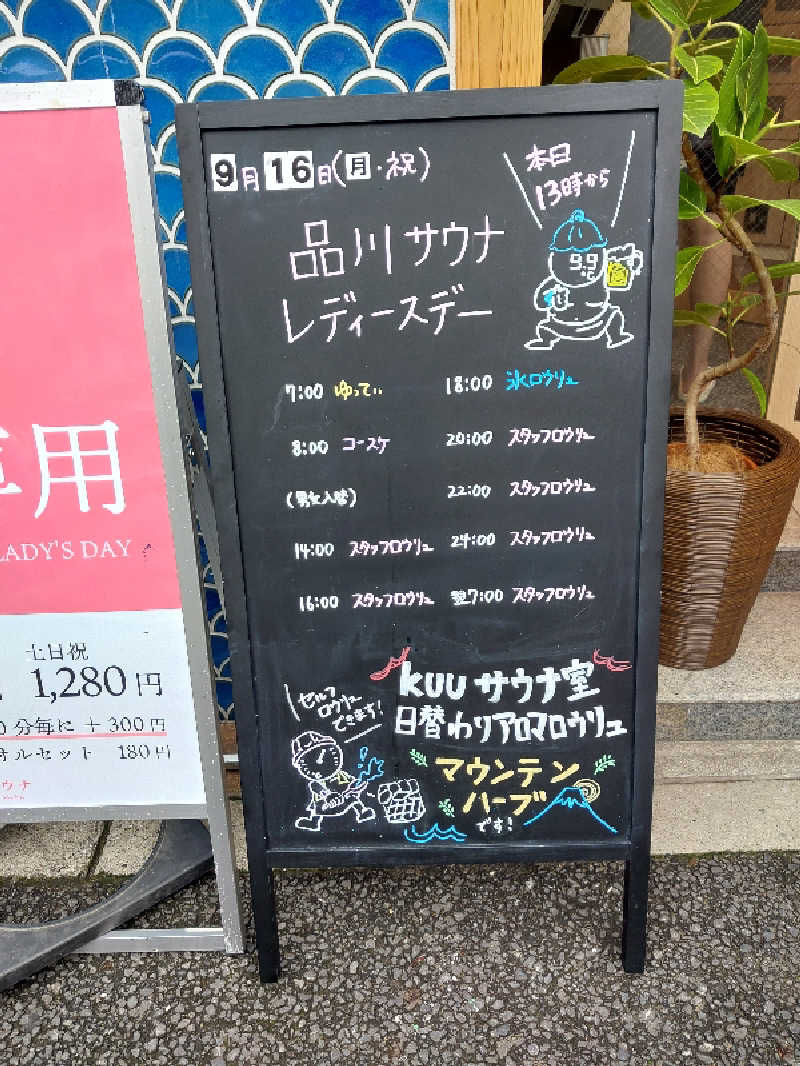 9月16日(月・祝)
本日
13時から
品川サウナ
レディースデー
99℃
7:00 ゆってぃ
8:00 コースケ
(男女入替)
14:00 スタッフロウリュ
16:00 スタッフロウリュ
18:00 氷ロウリュ
20:00 スタッフロウリュ
22:00 スタッフロウリュ
24:00 スタッフロウリュ
翌7:00 スタッフロウリュ
セルフ
ロウリュー
できます!
kuuサウナ室
日替わりアロマロウリュ
マウンテン
ハーブ
です!
専用
LADY'S DAY
土日祝
1,280円
分毎に + 300円
ルセット 180円